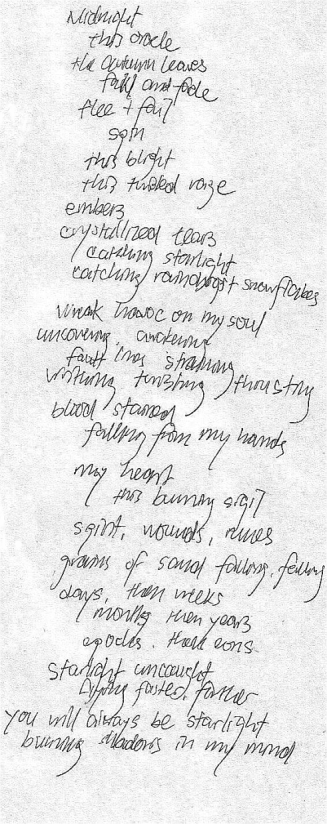 Midnight
this oracle
the autumn leaves
fall and fade
flee + fail
spin
this blight
this twisted maze
embers
crystallized tears
catching starlight
catching snowflakes
wreak havoc on my soul
uncovering, awakening
fault lines straining
writhing twisting, thrusting
blood stained
falling from my hands
my heart
this burning sigil
spirit, wounds, runes
grains of sand falling, falling
days, then weeks
months then years
epochs. then eons.
starlight uncaught
flying faster, farther
you will always be starlight
burning shadows in my mind